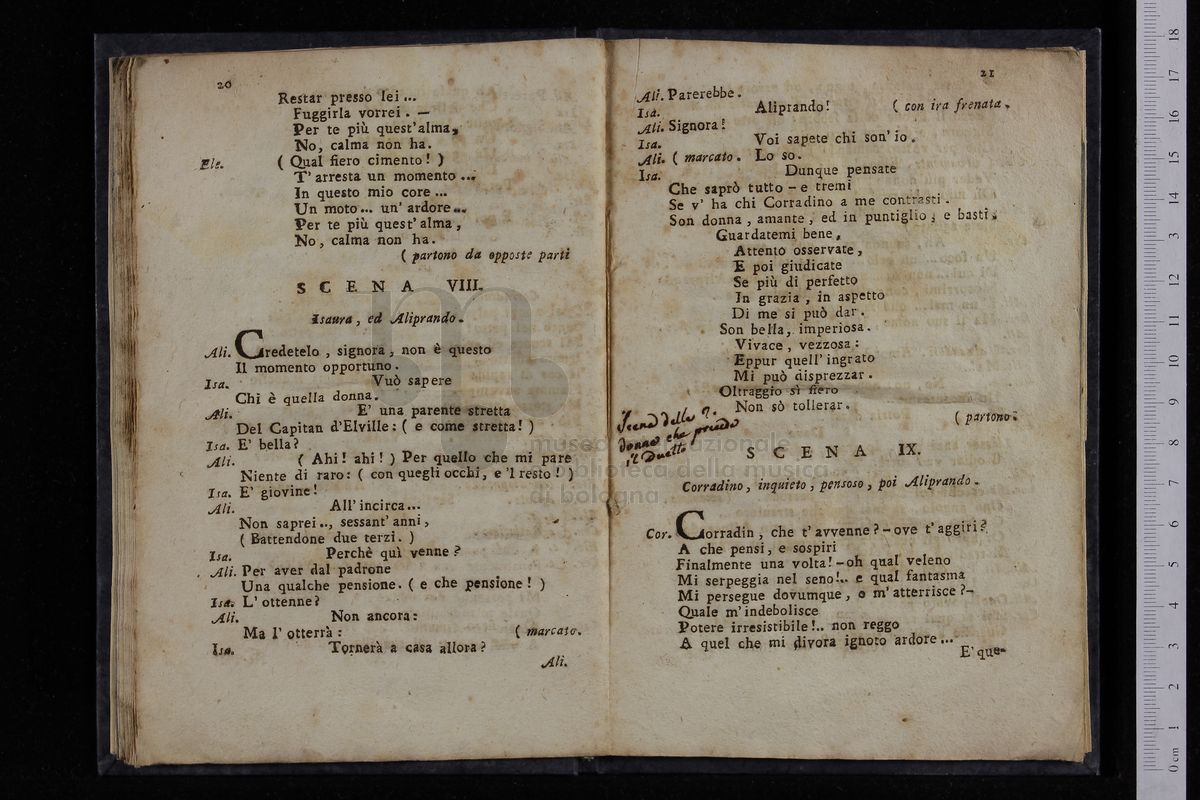 20
Restar presso lei ...
Fuggirla vorrei. —
Per te più quest'alma,
No, calma non ha.
Ele. ( Qual fiero cimento! )
T' arresta un momento ...
In questo mio core ...
Un moto ... un' ardore ...
Per te più quest' alma,
No, calma non ha.
( partono da opposte parti
SCENA VIII.
Isaura, ed Aliprando.
Ali. Credetelo, signora, non è questo
Il momento opportuno.
Isa. Vuò sapere
Chi è quella donna.
Ali. E' una parente stretta
Del Capitan d'Elville: ( e come stretta! )
Isa. E' bella?
Ali. ( Ahi! ahi! ) Per quello che mi pare
Niente di raro: ( con quegli occhi, e 'l resto! )
Isa. E' giovine!
Ali. All' incirca...
Non saprei.., sessant' anni,
( Battendone due terzi. )
Isa. Perchè quì venne?
Ali. Per aver dal padrone
Una qualche pensione. ( e che pensione! )
Isa. L' ottenne?
Ali. Non ancora:
Ma l' otterrà: ( marcato.
Isa. Tornerà a casa allora?
Ali.
21
Ali. Parerebbe.
Isa. Aliprando! ( con ira frenata.
Ali. Signora!
Isa. Voi sapete chi son' io.
Ali. ( marcato. Lo so.
Isa. Dunque pensate
Che saprò tutto - e tremi
Se v' ha chi Corradino a me contrasti.
Son donna, amante, ed in puntiglio, e basti.
Guardatemi bene,
Attento osservate,
E poi giudicate
Se più di perfetto
In grazia, in aspetto
Di me si può dar.
Son bella, imperiosa.
Vivace, vezzosa:
Eppur quell' ingrato
Mi può disprezzar.
Oltraggio sì fiero
Non sò tollerar.
( partono.
Scena delle 2.
donne che precede
il Duetto
SCENA IX.
Corradino, inquieto, pensoso, poi Aliprando.
Cor. Corradin, che t' avvenne? - ove t' aggiri?
A che pensi, e sospiri
Finalmente una volta! - oh qual veleno
Mi serpeggia nel seno!.. e qual fantasma
Mi persegue dovumque, o m' atterrisce? -
Quale m' indebolisce
Potere irresistibile!.. non reggo
A quel che mi divora ignoto ardore ...
E' que-
museo internazionale
e biblioteca della musica
di bologna
0 cm 1 2 3 4 5 6 7 8 9 10 11 12 13 14 15 16 17 18